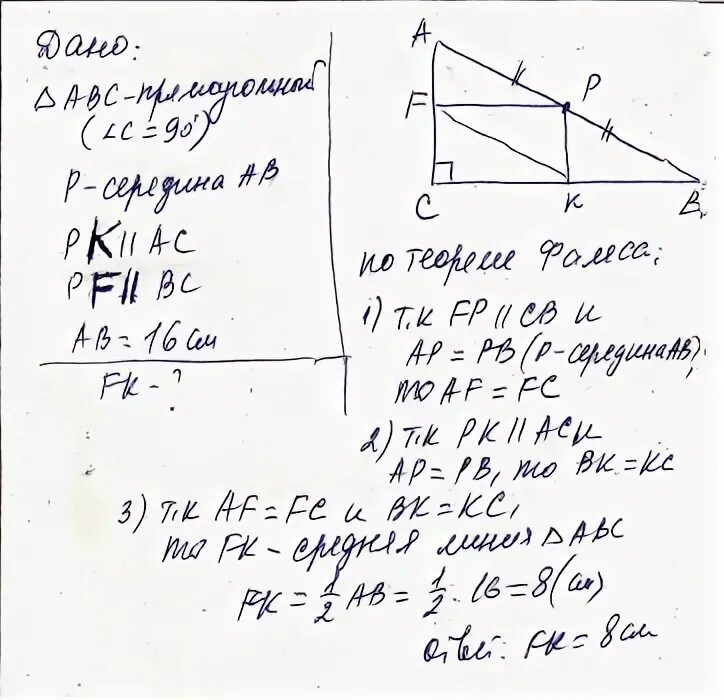 Дано:
△ABC-прямоугольный
(∠C=90°)
P-середина AB
PK||AC
PF|| BC
AB=16см
FK-?
A
F
P
C
K
B
по теореме Фалеса:
1) т.к FP||CB и
AP=PB(P-серединаAB),
то AF=FC
2) т.к PK||AC и
AP=PB, то BK=KC
3) т.к AF=FC и BK=KC,
то FK-средняя линия △ABC
FK=1/2 AB=1/2·16=8(см)
Ответ: FK=8см